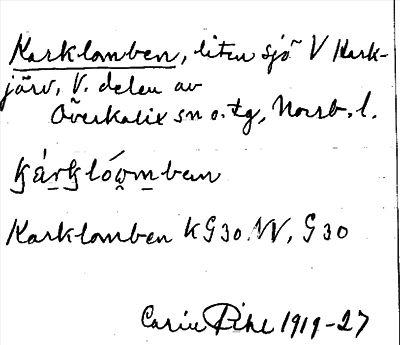 Karklomben, liten sjö V Kark-
järv, V. delen av
Överkalix sn o. tg, Norrb. l.
Karklomben KG30.NV, G30
Carin Pihl 1919-27